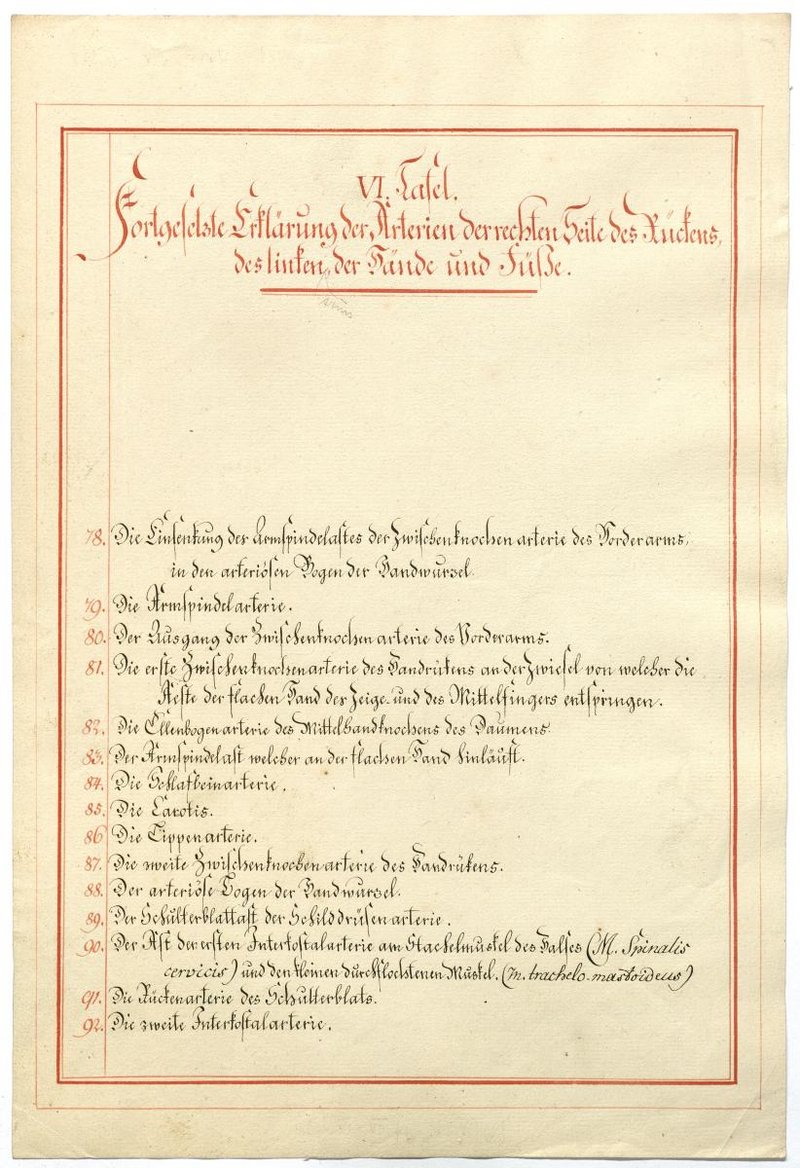 VI. Tafel.
Fortgesetzte Erklärung der Arterien der rechten Seite des Rückens,
des linken, der Hände und Füße.
78. Die Einsenkung des Armspindelastes der Zwischenknochenarterie des Vorderarms,
in den arteriösen Bogen der Handwurzel.
79. Die Armspindelarterie.
80. Der Ausgang der Zwischenknochenarterie des Vorderarms.
81. Die erste Zwischenknochenarterie des Handrükens an der Zwiesel von welcher die
Aeste der flachen Hand des Zeige- und des Mittelfingers entspringen.
82. Die Ellenbogenarterie des Mittelhandknochens des Daumens.
83. Der Armspindelast welcher an der flachen Hand hinläuft.
84. Die Schlafbeinarterie.
85. Die Carotis.
86 Die Lippenarterie.
87. Die zweite Zwischenknochenarterie des Handrükens.
88. Der arteriöse Bogen der Handwurzel.
89. Der Schulterblattast der Schilddrüsenarterie.
90. Der Ast der ersten Interkostalarterie am Stachelmuskel des Halses (M. Spinalis
cervicis) und den kleinen durchflochtenen Muskel. (m. trachelo-mastoideus)
91. Die Rückenarterie des Schulterblats.
92. Die zweite Interkostalarterie.